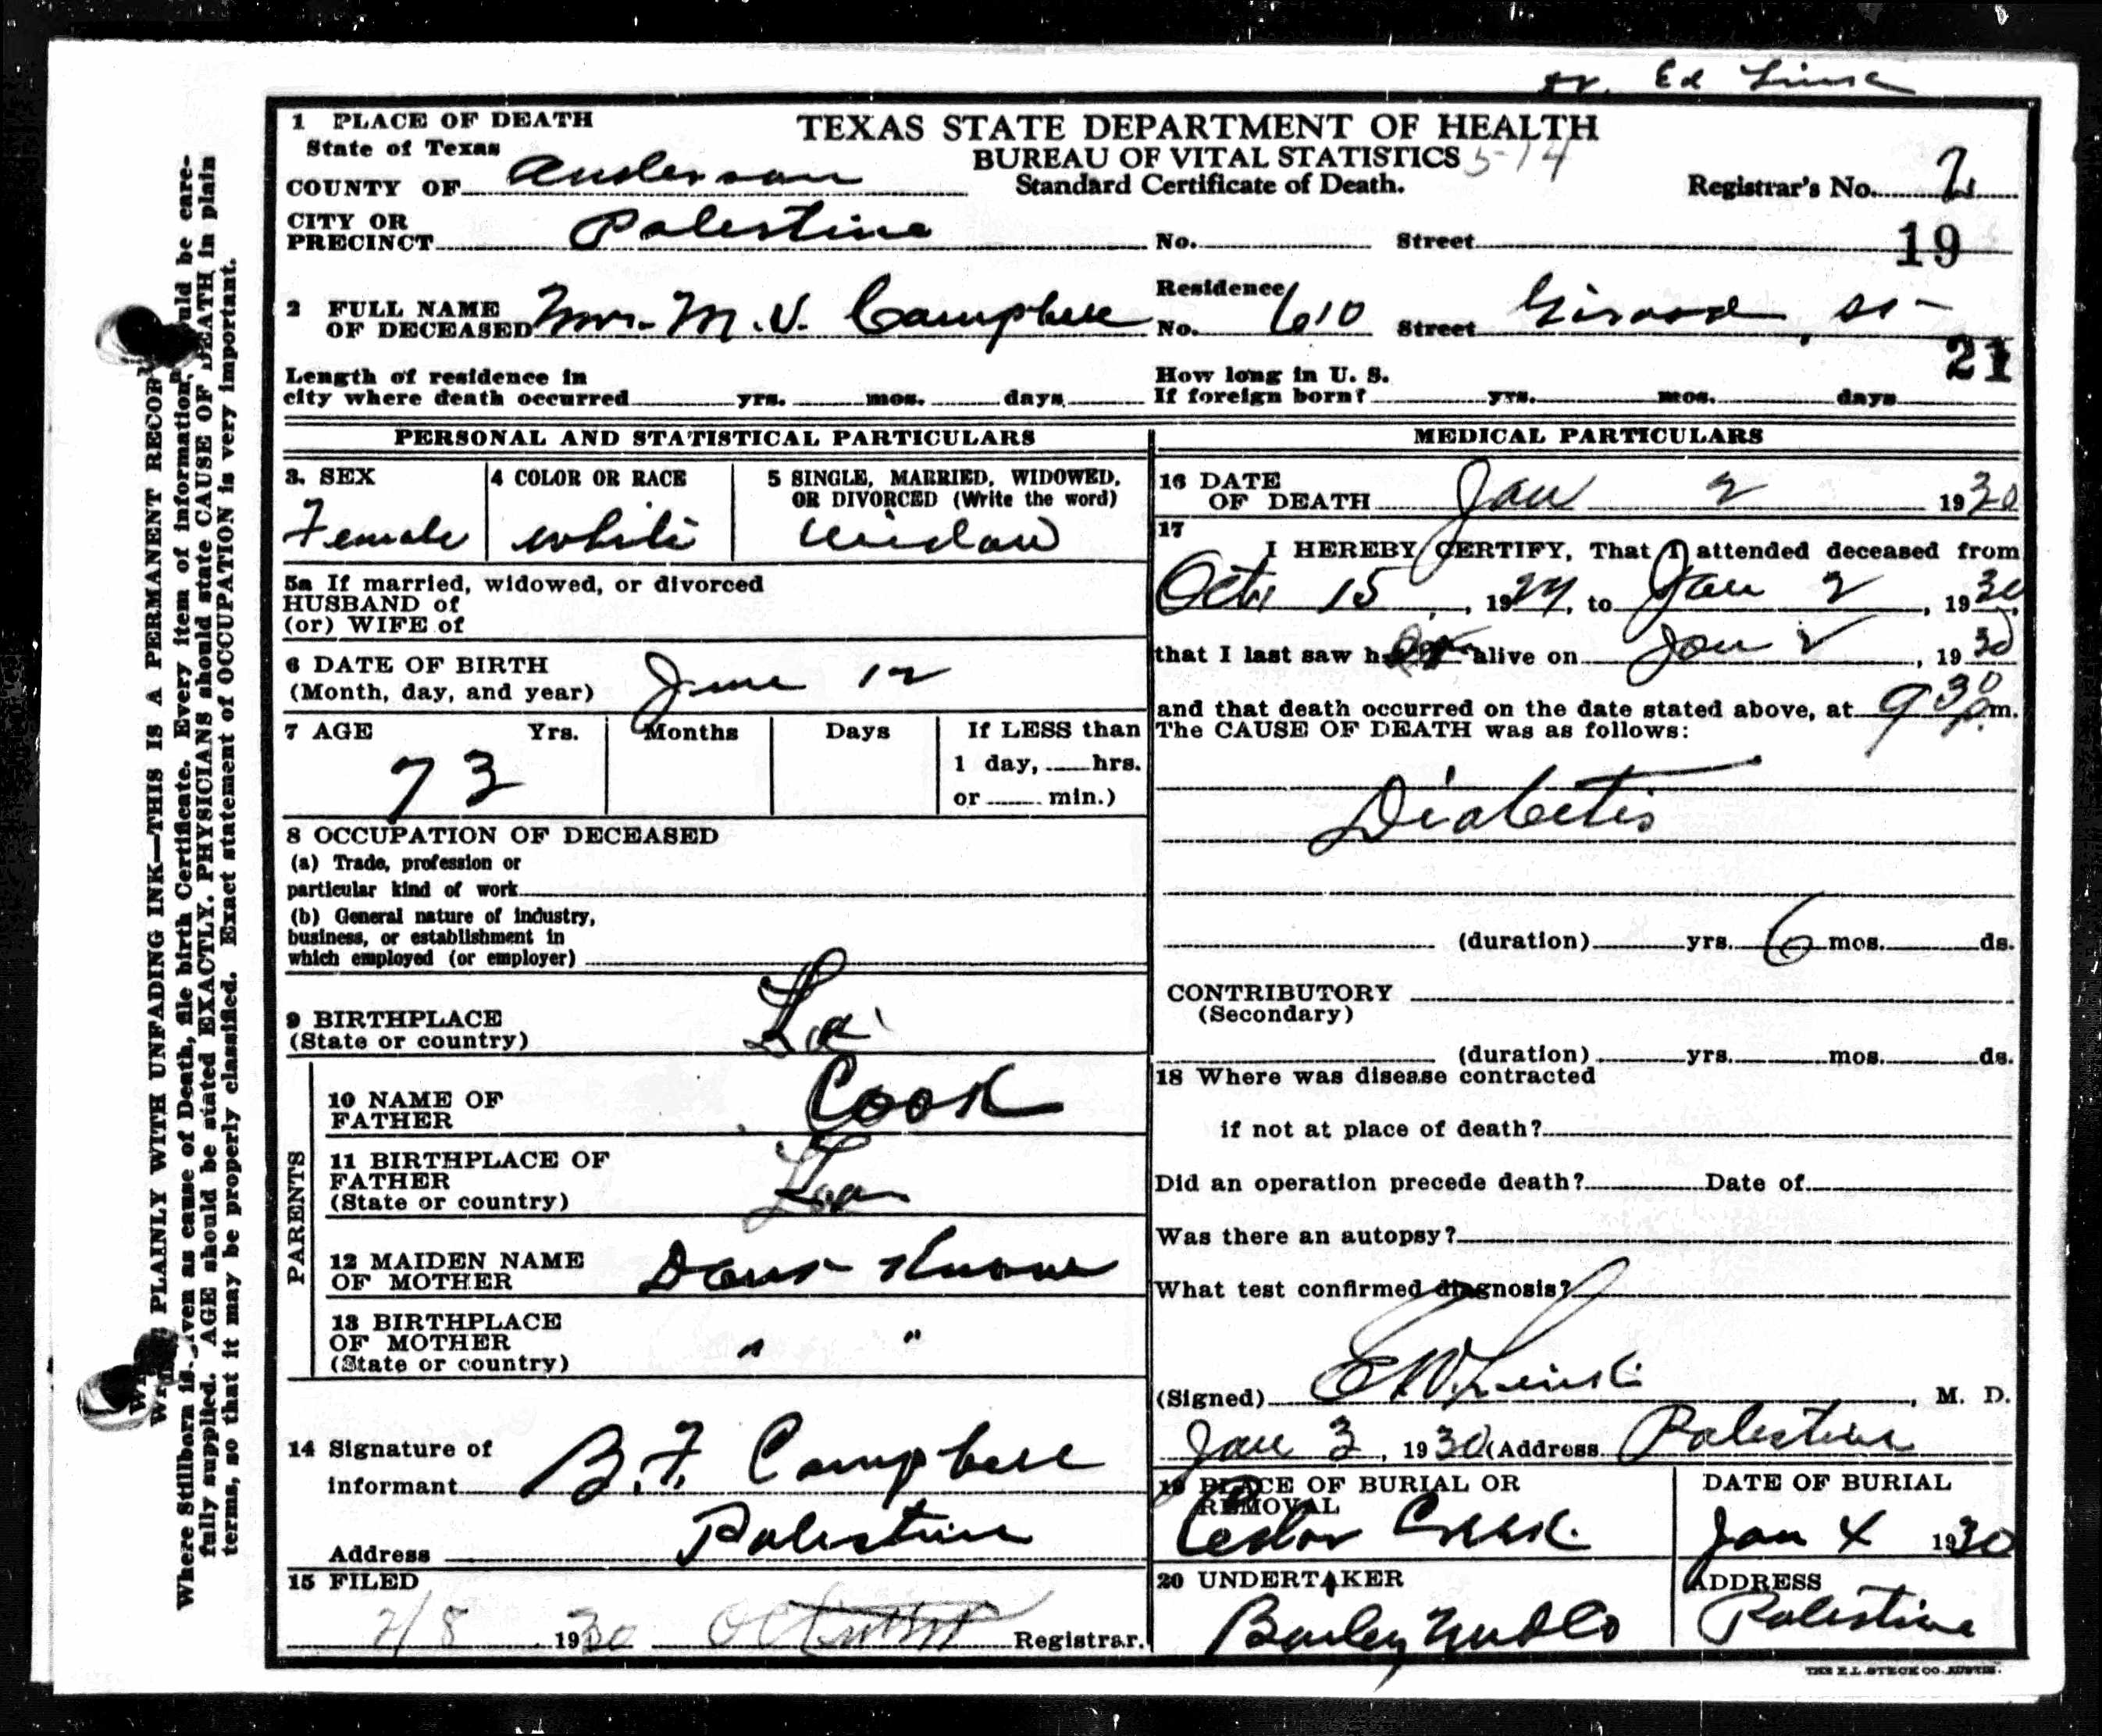 Dr. Ed Link
1 PLACE OF DEATH
State of Texas
TEXAS STATE DEPARTMENT OF HEALTH
BUREAU OF VITAL STATISTICS 5-14
COUNTY OF Anderson
Standard Certificate of Death.
Registrar's No. 2
CITY OR
PRECINCT Palestine No. Street 19
2 FULL NAME
OF DECEASED Mrs. M. V. Campbell
Residence
No. 610 Street Girard, St-
21
Length of residence in
city where death occurred yrs. mos. days
How long in U. S.
If foreign born? yrs. mos. days
PERSONAL AND STATISTICAL PARTICULARS
3. SEX
Female
4 COLOR OR RACE
white
5 SINGLE, MARRIED, WIDOWED,
OR DIVORCED (Write the word)
widow
5a If married, widowed, or divorced
HUSBAND of
(or) WIFE of
6 DATE OF BIRTH
(Month, day, and year) June 12
7 AGE Yrs. Months Days If LESS than
73
1 day, hrs.
or min.)
8 OCCUPATION OF DECEASED
(a) Trade, profession or
particular kind of work
(b) General nature of industry,
business, or establishment in
which employed (or employer)
9 BIRTHPLACE
(State or country) La
PARENTS
10 NAME OF
FATHER Cook
11 BIRTHPLACE OF
FATHER
(State or country) La
12 MAIDEN NAME
OF MOTHER Dont Know
13 BIRTHPLACE
OF MOTHER " "
(State or country)
14 Signature of
informant B. F. Campbell
Address Palestine
15 FILED
2/8 1930 Registrar.
MEDICAL PARTICULARS
16 DATE
OF DEATH Jan 2 1930
17
I HEREBY CERTIFY, That I attended deceased from
Oct 15, 1929, to Jan 2, 1930,
that I last saw her alive on Jan 2, 1930
and that death occurred on the date stated above, at 9 30 p.m.
The CAUSE OF DEATH was as follows:
Diabetis
(duration) yrs. 6 mos. ds.
CONTRIBUTORY
(Secondary)
(duration) yrs. mos. ds.
18 Where was disease contracted
if not at place of death?
Did an operation precede death? Date of
Was there an autopsy?
What test confirmed diagnosis?
(Signed) E W Link, M. D.
Jan 3, 1930 (Address Palestine
19 PLACE OF BURIAL OR
REMOVAL
Cedar Creek
DATE OF BURIAL
Jan 4 1930
20 UNDERTAKER
ADDRESS
Palestine
THE E.L. STECK CO. AUSTIN.
PLAINLY WITH UNFADING INK—THIS IS A PERMANENT RECORD
Where Stillborn is given as cause of Death, file birth Certificate. Every item of information should be care-
fully supplied. AGE should be stated EXACTLY. PHYSICIANS should state CAUSE OF DEATH in plain
terms, so that it may be properly classified. Exact statement of OCCUPATION is very important.